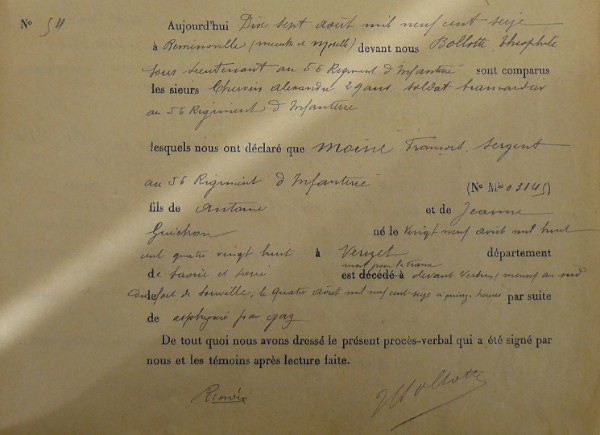 N° 54
Aujourd'hui Dix sept août mil neuf cent seize
à (meurthe et moselle) devant nous Bollotte Théophile
sous lieutenant au 56 Régiment d'Infanterie sont comparus
les sieurs alexandre 29 ans, soldat brancardier
au 56 Régiment d'Infanterie
lesquels nous ont déclaré que Moine François, sergent
au 56 Régiment d'Infanterie (N° Mle 03145)
fils de Antoine et de Jeanne
Guichon né le Vingt neuf août mil huit
cent quatre vingt huit à département
de Saône et Loire mort pour la france est décédé à devant Verdun, au sud
du fort de le quatre août mil neuf cent seize à heures par suite
de asphyxié par gaz
De tout quoi nous avons dressé le présent procès-verbal qui a été signé par
nous et les témoins après lecture faite.
Bollotte